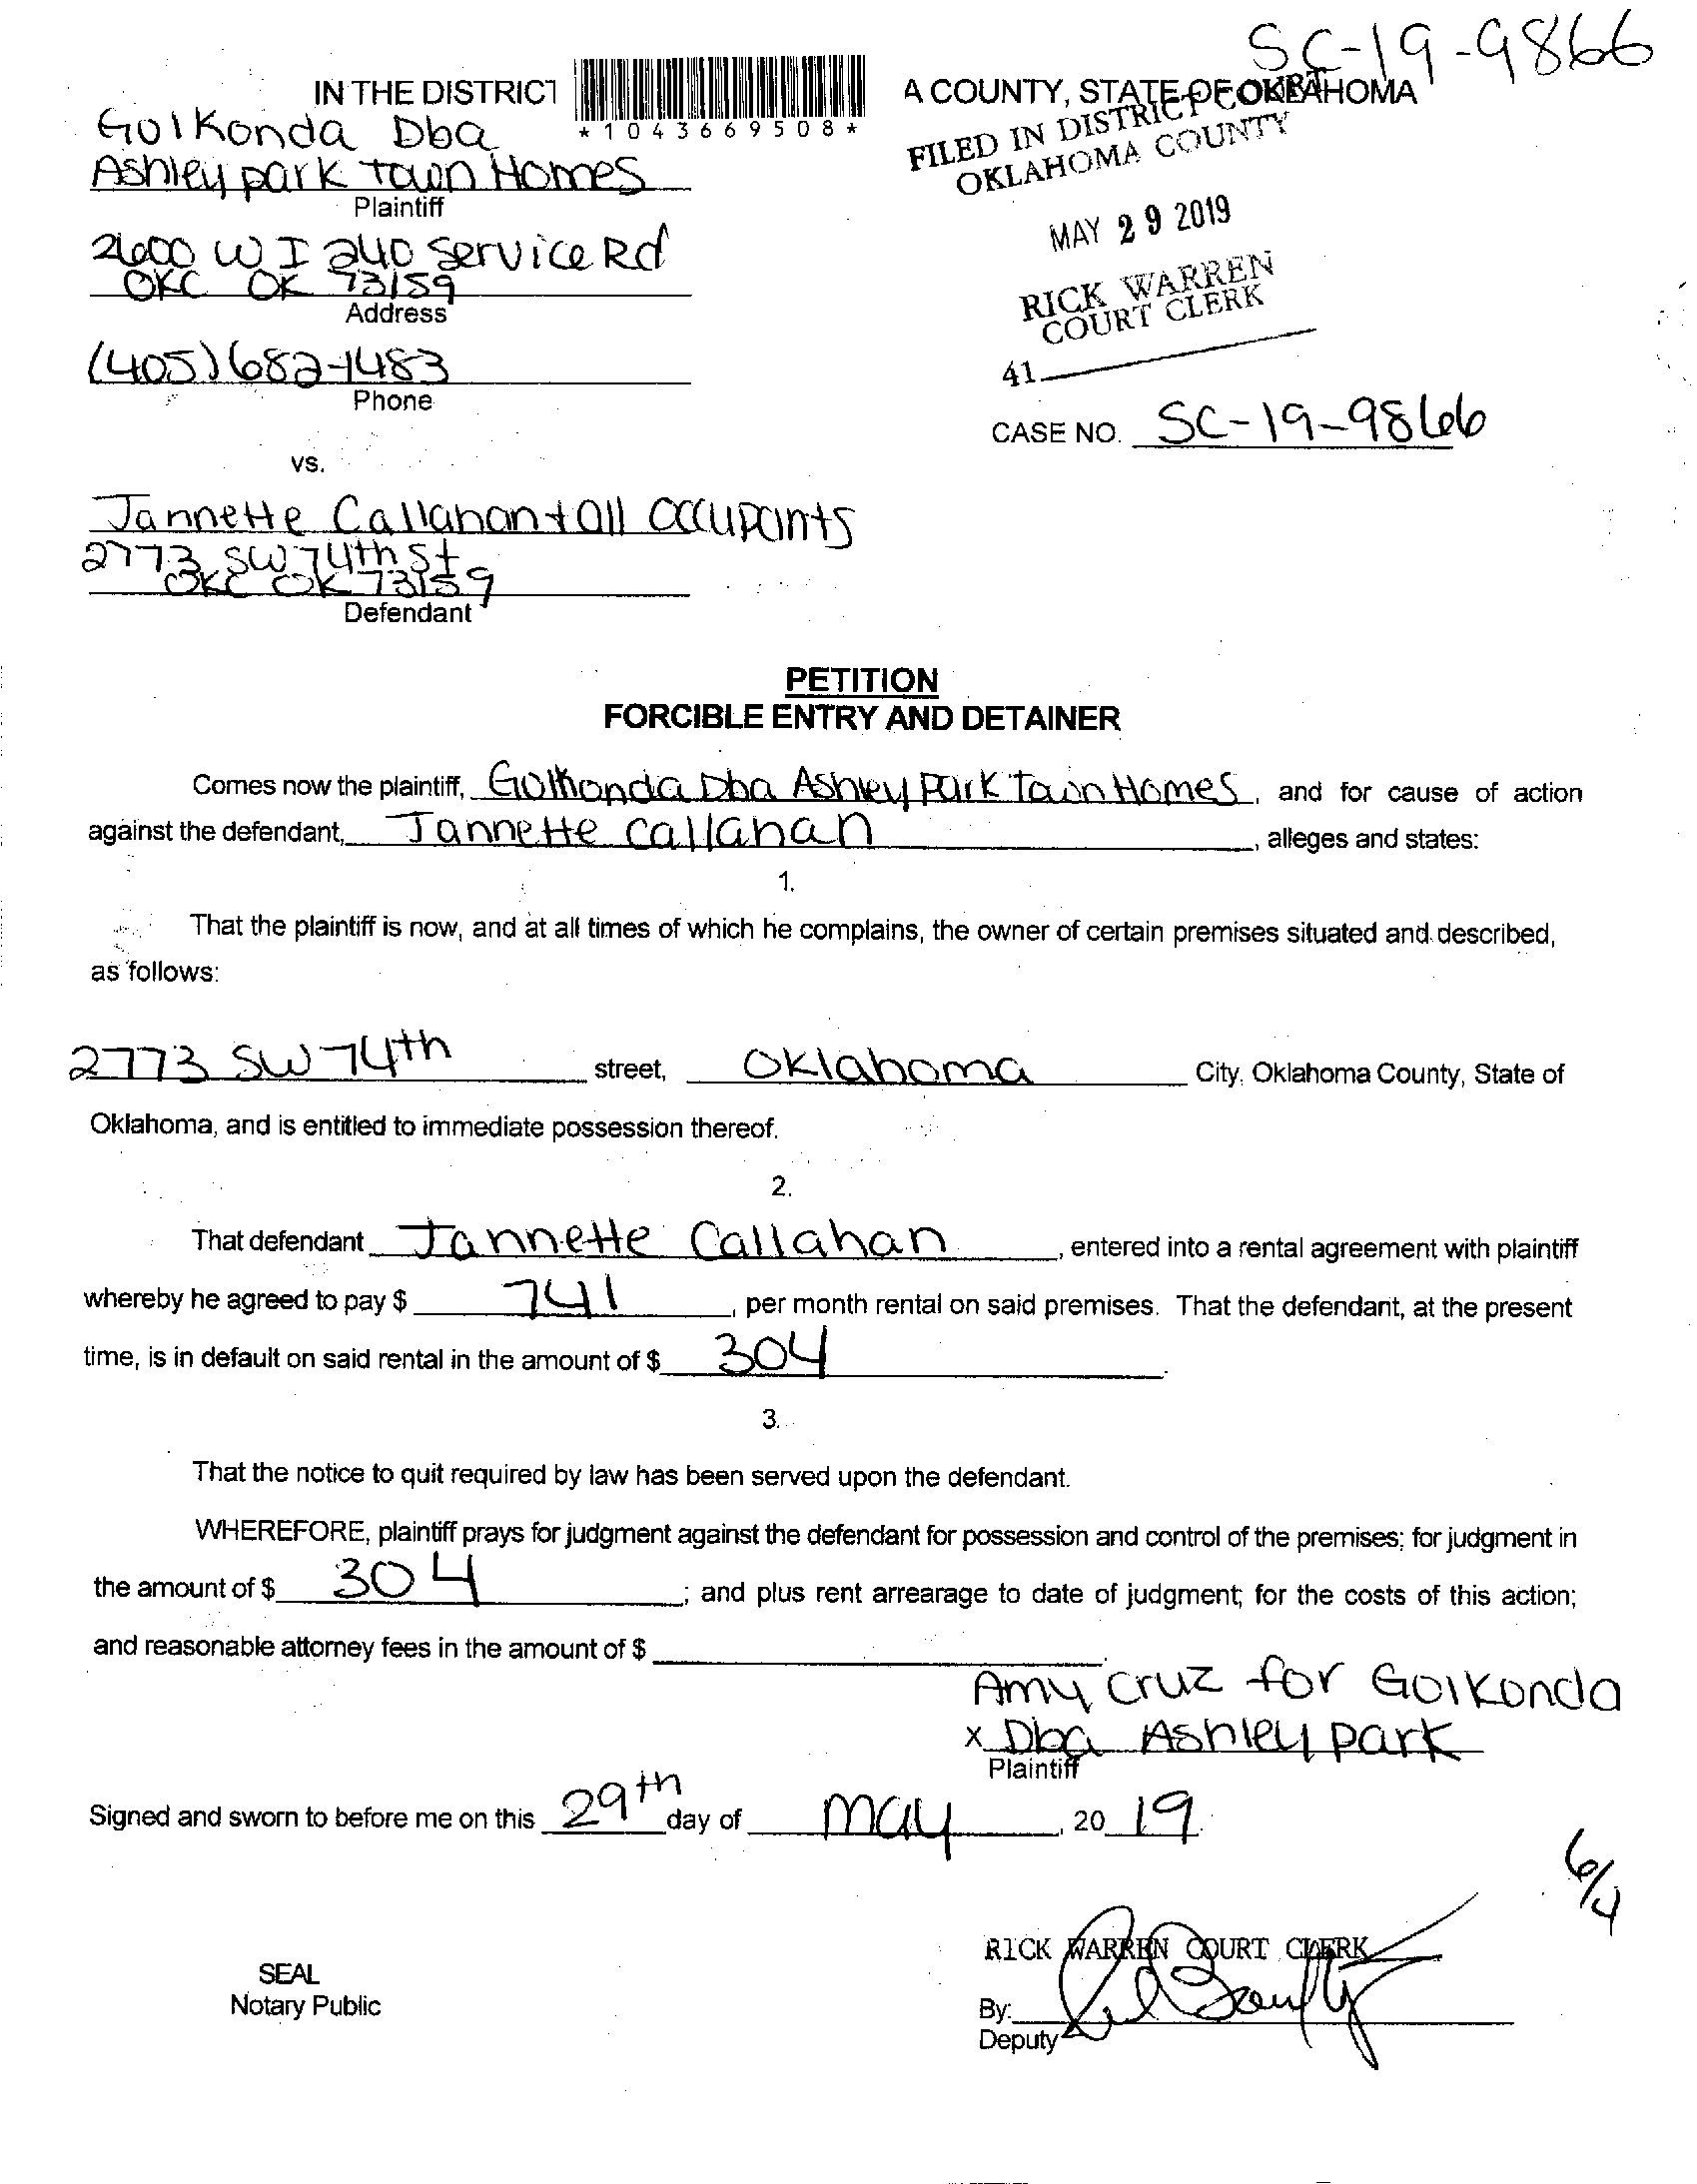 SC-19-9866
IN THE DISTRICT
A COUNTY, STATE OF OKLAHOMA
*1043669508*
FILED IN DISTRICT COURT
OKLAHOMA COUNTY
MAY 29 2019
RICK WARREN
COURT CLERK
41
Golkonda Dba
Ashley park Town Homes
Plaintiff
2600 W I 240 Service Rd
OKC OK 73159
Address
(405)682-1483
Phone
CASE NO. SC-19-9866
vs.
Jannette Callahan + all occupants
2773 SW 74th St
OKC OK 73159
Defendant
PETITION
FORCIBLE ENTRY AND DETAINER
Comes now the plaintiff, Golkonda Dba Ashley Park Town Homes, and for cause of action
against the defendant, Jannette callahan, alleges and states:
1.
That the plaintiff is now, and at all times of which he complains, the owner of certain premises situated and described,
as follows:
2773 SW 74th street, Oklahoma City, Oklahoma County, State of
Oklahoma, and is entitled to immediate possession thereof.
2.
That defendant Jannette Callahan, entered into a rental agreement with plaintiff
whereby he agreed to pay $ 741, per month rental on said premises. That the defendant, at the present
time, is in default on said rental in the amount of $ 304.
3.
That the notice to quit required by law has been served upon the defendant.
WHEREFORE, plaintiff prays for judgment against the defendant for possession and control of the premises; for judgment in
the amount of $ 304; and plus rent arrearage to date of judgment; for the costs of this action;
and reasonable attorney fees in the amount of $ .
Amy Cruz for Golkonda
x Dba Ashley park
Plaintiff
Signed and sworn to before me on this 29th day of may, 20 19.
6/4
RICK WARREN COURT CLERK
SEAL
Notary Public
By:
Deputy